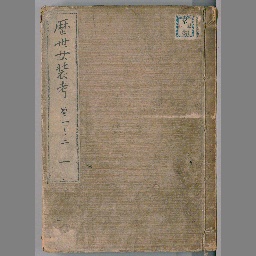 歴世女装考 巻一之二 一